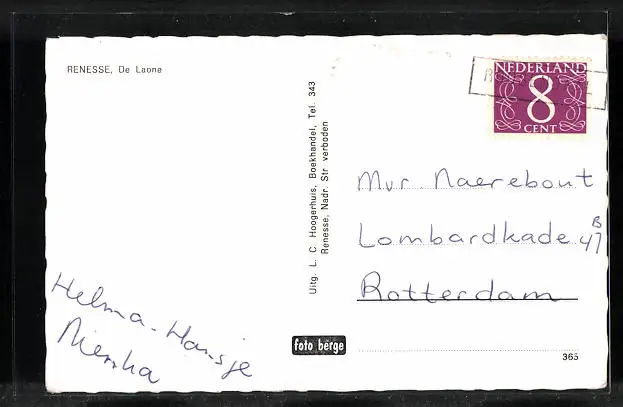 RENESSE, De Laone
NEDERLAND
8
CENT
Uitg. L. C Hoogerhuis, Boekhandel, Tel. 343
Renesse, Nadr. Str verboden
Mvr. Naerebout
Lombardkade 47 B
Rotterdam
Helma - Hansje
foto berge
365